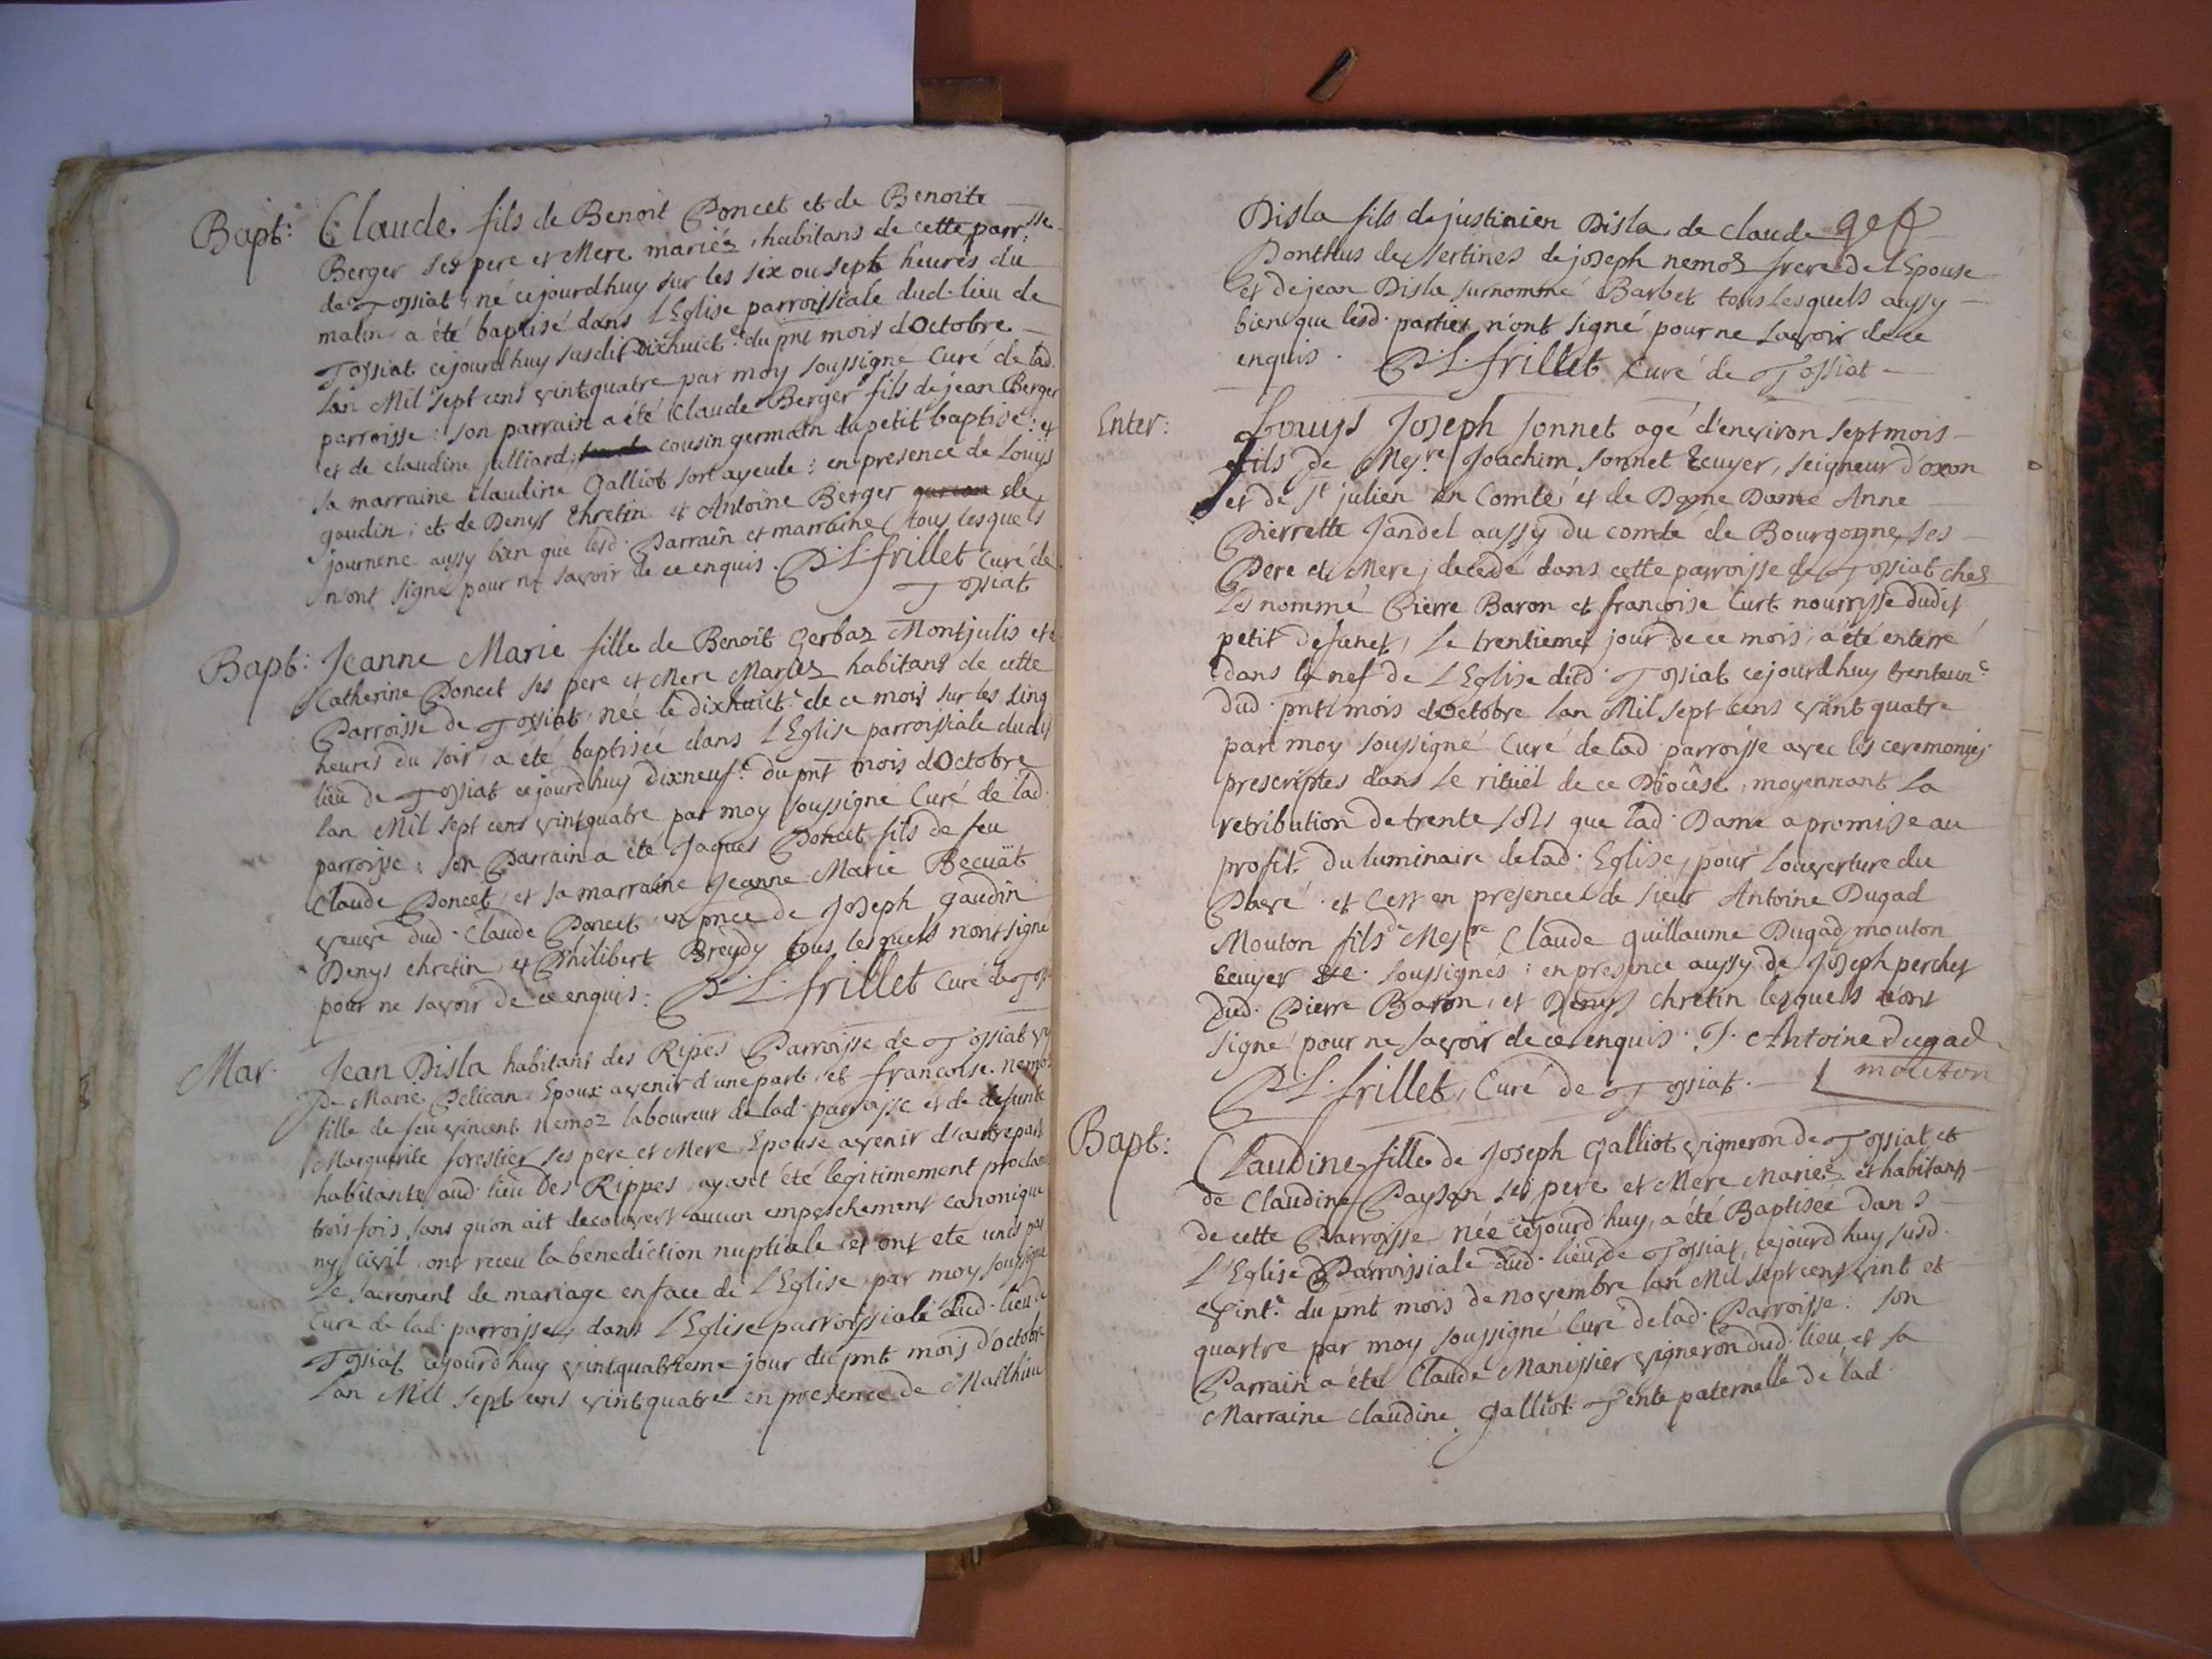 Bapt: Claude fils de Benoit Poncet et de Benoite
Berger ses pere et Mere mariéz, habitans de cette parr:sse
de Tossiat, né cejourdhuy sur les six ou sept heures du
matin a été baptisé dans l'Eglise parroissiale dud. lieu de
Tossiat cejourdhuy susdit dixhuict.e du pnt mois d'Octobre
lan Mil sept cens vint quatre par moy soussigné Curé de lad.
parroisse: son parrain a été Claude Berger fils de jean Berger
et de claudine julliard, cousin germain du petit baptisé: et
sa marraine Claudine Galliot son ayeule: en presence de Louys
gaudin, et de Denys Chretin et Antoine Berger de
journene aussy bien que lesd. Parrain et marraine, tous lesquels
n'ont signé pour ne savoir de ce enquis. P. L. frillet Curé de
Tossiat
Bapt: Jeanne Marie fille de Benoit Gerbaz Montjulis et
Catherine Poncet ses pere et Mere Mariéz habitans de cette
Parroisse de Tossiat, née le dixhuict.e de ce mois sur les sinq
heures du soir, a été baptisée dans l'Eglise parroissiale dudit
lieu de Tossiat cejourdhuy dixneuf.e du pnt mois d'Octobre
lan Mil sept cens vint quatre par moy soussigné Curé de lad.
parroisse: son Parrain a été Jaques Poncet fils de feu
Claude Poncet, et sa marraine Jeanne Marie Becuat
veuve dud. Claude Poncet, en pnce de Joseph gaudin
Denys chretin, et Philibert Breydy tous lesquels n'ont signé
pour ne savoir de ce enquis: P. L. frillet Curé de Toss
Mar. Jean Disla habitant des Ripes Parroisse de Tossiat
de Marie Pelican Epoux avenir d'une part, et francoise nemoz
fille de feu vincent Nemoz laboureur de lad. parroisse et de defunte
Marguerite forestier ses pere et Mere, Epouse avenir d'autre part
habitante aud. lieu des Rippes, ayant été legitimement proclamé
trois fois sans qu'on ait decouvert aucun empeschement canonique
ny civil, ont receu la benediction nuptiale et ont été unis par
le sacrement de mariage en face de l'Eglise, par moy soussigné
Curé de lad. parroisse, dans l'Eglise parroissiale dud. lieu de
Tossiat cejourd'huy vintquatrieme jour du pnt mois d'octobre
lan Mil sept cens vint quatre en presence de Matthieu
Disla fils de justinien Disla, de Claude
Ponthus de Sertines de joseph nemoz frere de l'Epouse
et de jean Disla surnommé Barbet tous lesquels aussy
bien que lesd. parties n'ont signé pour ne savoir de ce
enquis. P. L. frillet Curé de Tossiat
Enter: Louys Joseph Sonnet agé d'environ sept mois
fils de Mes.re Joachim Sonnet Ecuyer, seigneur d'oxon
et de St julien en Comté, et de Dame Dame Anne
Pierrette Jandel aussy du comté de Bourgogne, ses
Pere et Mere, decedé dans cette parroisse de Tossiat chez
les nommé Pierre Baron et françoise Curt nourrisse dudit
petit defunct, le trentieme jour de ce mois, a été enterré
dans la nef de l'Eglise dud. Tossiat cejourdhuy trenteun.e
dud. pnt mois d'Octobre lan Mil sept cens vint quatre
par moy soussigné Curé de lad. parroisse avec les ceremonies
prescriptes dans le rituel de ce Diocêse, moyennant la
retribution de trente sols que lad. Dame a promise au
profit du luminaire de lad. Eglise, pour l'ouverture du
Pavé. et c'est en presence de sieur Antoine Dugad
Mouton fils de Mes.re Claude guillaume Dugad mouton
Ecuyer &c. soussignés: en presence aussy de Joseph perchet
dud. Pierre Baron, et Denys chretin lesquels n'ont
signé pour ne savoir de ce enquis. J. Antoine dugad
mouton
P. L. frillet, Curé de Tossiat.
Bapt: Claudine, fille de Joseph Galliot vigneron de Tossiat, et
de Claudine Paysan ses pere et Mere Mariéz et habitans
de cette Parroisse, née cejourd'huy, a été Baptisée dans
l'Eglise Parroissiale dud. lieu de Tossiat, cejourd'huy susd.
vint.e du pnt mois de novembre lan Mil sept cens vint et
quattre par moy soussigné Curé de lad. Parroisse: son
Parrain a été Claude Manissier vigneron dud. lieu, et sa
Marraine Claudine Galliot Tente paternelle de lad.